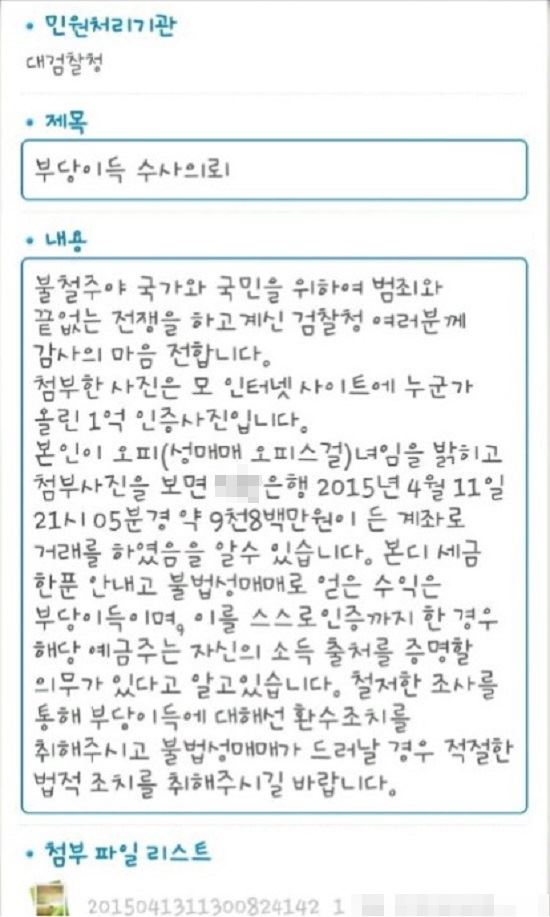 • 민원처리기관
대검찰청
• 제목
부당이득 수사의뢰
• 내용
불철주야 국가와 국민을 위하여 범죄와
끝없는 전쟁을 하고계신 검찰청 여러분께
감사의 마음 전합니다.
첨부한 사진은 모 인터넷 사이트에 누군가
올린 1억 인증사진입니다.
본인이 오피(성매매 오피스걸)녀임을 밝히고
첨부사진을 보면 은행 2015년 4월 11일
21시 05분경 약 9천8백만원이 든 계좌로
거래를 하였음을 알수 있습니다. 본디 세금
한푼 안내고 불법성매매로 얻은 수익은
부당이득이며, 이를 스스로인증까지 한 경우
해당 예금주는 자신의 소득 출처를 증명할
의무가 있다고 알고있습니다. 철저한 조사를
통해 부당이득에 대해선 환수조치를
취해주시고 불법성매매가 드러날 경우 적절한
법적 조치를 취해주시길 바랍니다.
• 첨부 파일 리스트
2015041311300824142 1